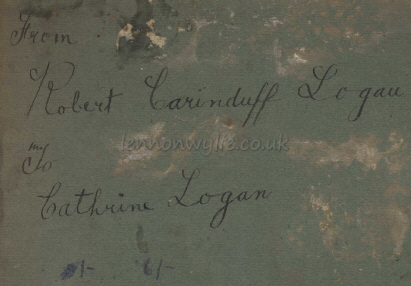 From
Robert Carinduff Logan
To
Cathrine Logan
lennonwylie.co.uk
6/-